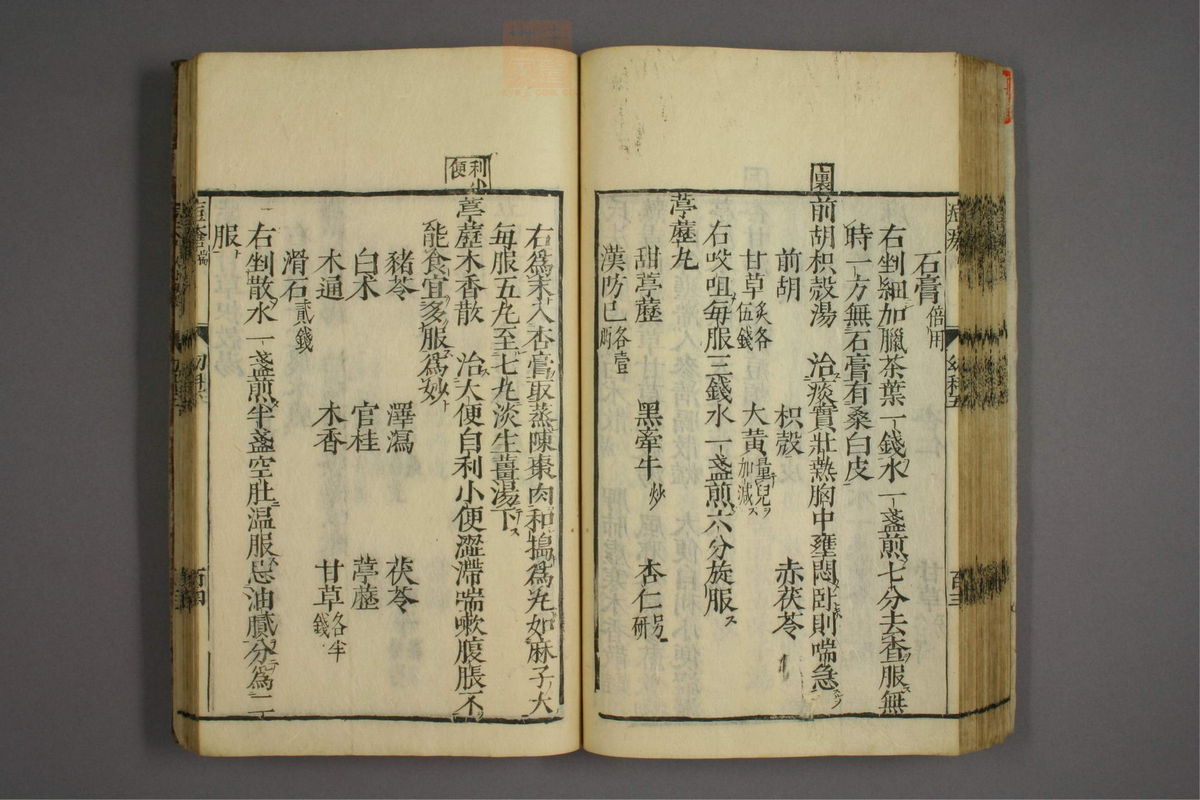 石膏倍用
右剉細加臘茶葉一錢水一盞煎七分去査服無
時一方無石膏有桑白皮
裏
前胡枳殼湯　治痰實壯熱胸中壅悶臥則喘急
前胡　枳殼　赤茯苓
甘草炙各伍錢　大黃量兒ヲ加減ス
右㕮咀每服三錢水一盞煎六分旋服ス
葶藶丸
甜葶藶　黑牽牛炒　杏仁另研
漢防已各壹兩
右爲末入杏膏取蒸陳棗肉和搗爲丸如麻子大
每服五丸至七丸淡生薑湯下ス
利小便
葶藶木香散　治大便自利小便澀滯喘嗽腹脹不
能食宜多服爲妙
豬苓　澤瀉　茯苓
白朮　官桂　葶藶
木通　木香　甘草各半錢
滑石貳錢
右剉散水一盞煎半盞空肚温服忌油膩分爲二
服
痘瘡　喘
百四